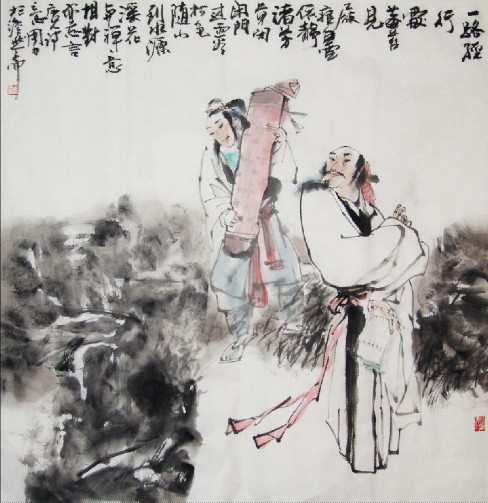 一路經
行
處
莓苔
見
屐
痕白雲
依靜
渚芳
草閉
閑門
過雨看
松色
随山
到水源
溪花
與禪意
相對
亦忘言
唐詩
意